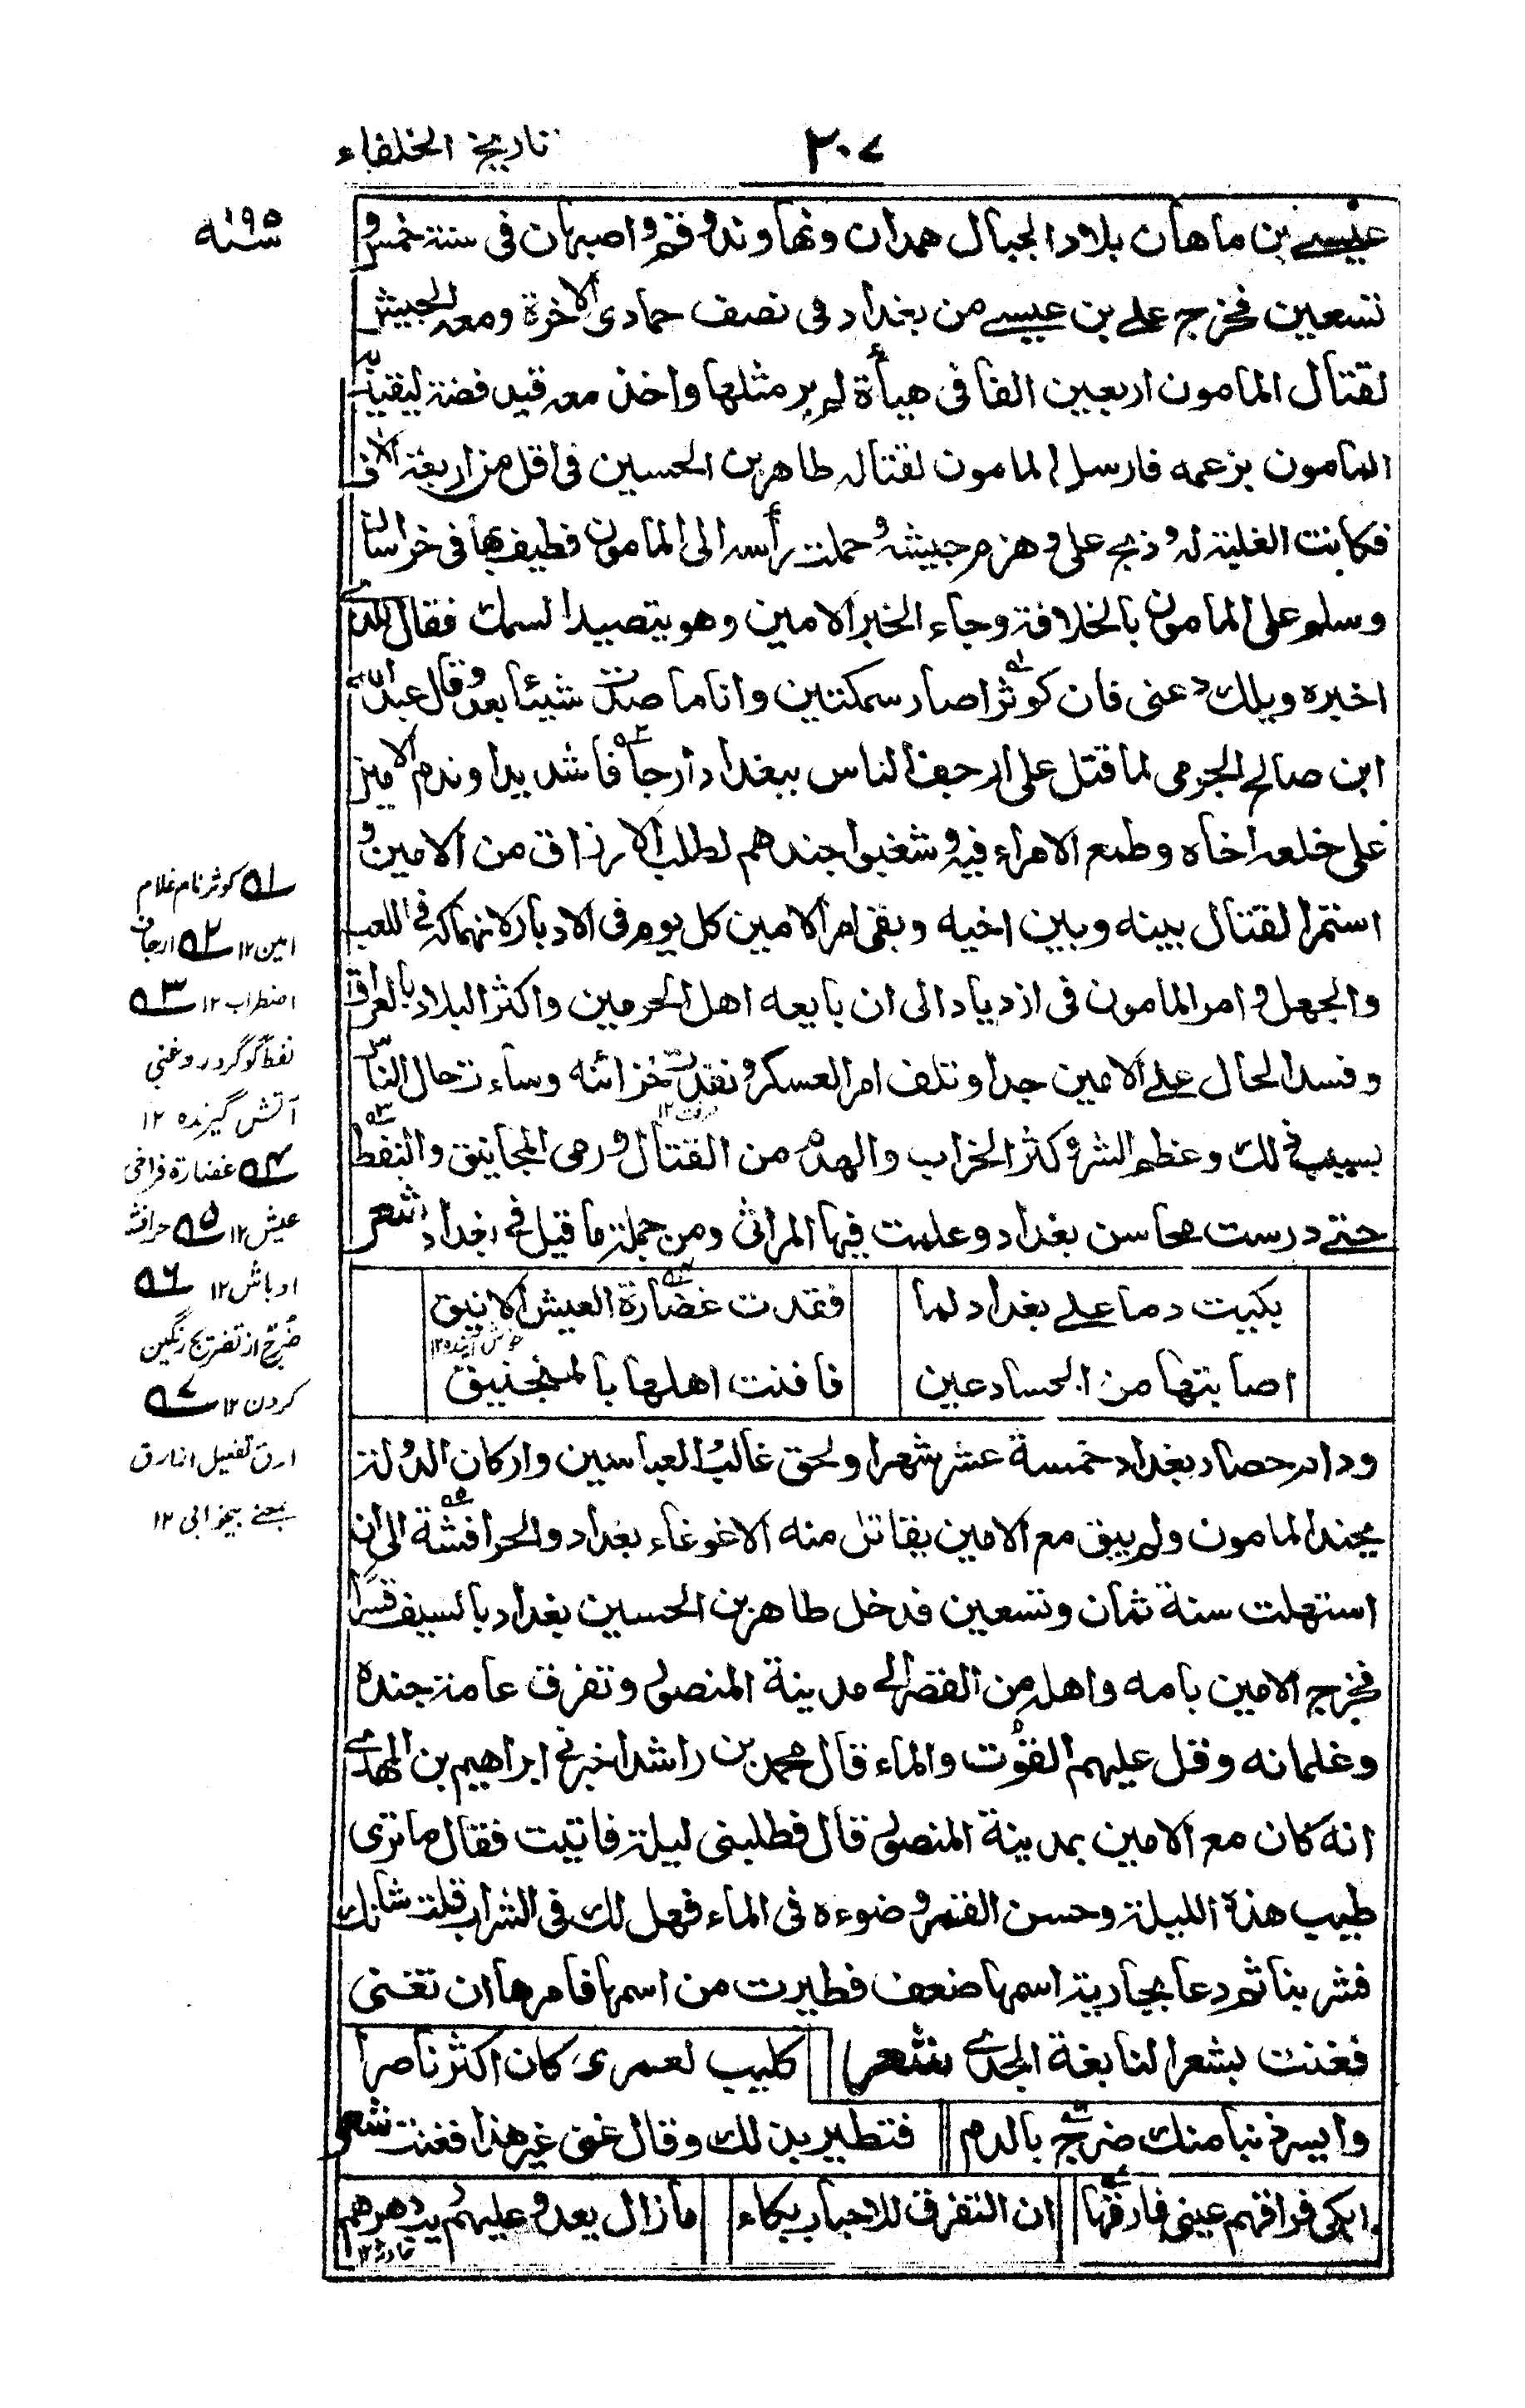 ٢٠٧
تاريخ الخلفاء
سنه ١٩٥
عيسے بن ماهان بلاد الجبال همدان ونهاوند وقم واصبهان فى سنة خمس و
تسعين فخرج علے بن عيسے من بغداد فى نصف جمادى الاخرة ومعه الجيش
لقتال المامون اربعين الفا فى هيأة لم ير مثلها واخذ معه قيد فضة ليقيد به
المامون بزعمه فارسل المامون لقتاله طاهر بن الحسين فى اقل من اربعة الاف
فكانت الغلبة له وذبح على وهزم جيشه وحملت رأسه الى المامون فطيف بها فى خراسان
وسلم على المامون بالخلافة وجاء الخبر الامين وهو يتصيد السمك فقال للذے
اخبره ويلك دعنى فان كوثرا صاد سمكتين وانا ما صدت شيئا بعد وقال عبد الله
ابن صالح الجرمى لما قتل على ارجف الناس ببغداد ارجافا شديدا وندم الامين
على خلعه اخاه وطمع الامراء فيه وشغبوا جندهم لطلب الارزاق من الامين و
استمر القتال بينه وبين اخيه وبقى امر الامين كل يوم فى الادبار لانهماكه فے اللعب
والجهل وامر المامون فى ازدياد الى ان بايعه اهل الحرمين واكثر البلاد بالعراق
وفسد الحال علے الامين جدا وتلف امر العسكر ونفدت خزائنه وساءت حال الناس
بسبب ذلك وعظم الشر وكثر الخراب والهدم من القتال ورمى المجانيق والنفط
حتے درست محاسن بغداد وعلمت فيها المراثى ومن جملة ما قيل فے بغداد شعر
بكيت دما علے بغداد لما فقدت غضارة العيش الانيق
اصابتها من الحساد عين فافنت اهلها بالمنجنيق
ودام حصار بغداد خمسة عشر شهرا ولحق غالب العباسيين واركان الدولة
بجند المامون ولم يبق مع الامين يقاتل منه الا غوغاء بغداد والحرافشة الى ان
استهلت سنة ثمان وتسعين فدخل طاهر بن الحسين بغداد بالسيف قسرا
فخرج الامين بامه واهله من القصر الى مدينة المنصور وتفرق عامة جنده
وغلمانه وقل عليهم القوت والماء قال محمد بن راشد اخبرنى ابراهيم بن المهدے
انه كان مع الامين بمدينة المنصور قال فطلبنى ليلة فاتيت فقال ما ترى
طيب هذه الليلة وحسن القمر وضوءه فى الماء فهل لك فى الشراب قلت شانك
فشربنا ثم دعا بجارية اسمها ضعف فطيرت من اسمها فامرها ان تغنى
فغنت بشعر النابغة الجعدے شعر كليب لعمرى كان اكثر ناصرا
وايسر ذنبا منك ضرج بالدم فتطير بذلك وقال غنى غير هذا فغنت شعر
ابكى فراقهم عينى فارقها ان التفرق للاحباب بكاء مازال يعدو عليهم دهرهم
لـه١ كوثر نام غلام
امين ١٢ لـه٢ ارجاف
اضطراب ١٢ لـه٣
نفط گوگرد روغنى
آتش گيرنده ١٢
لـه٤ غضارة فراخى
عيش ١٢ لـه٥ حرافشه
اوباش ١٢ لـه٦
ضرج از تضريج رنگين
كردن ١٢ لـه٧
ارق تفعيل از ارق
بمعنے بيخوابى ١٢